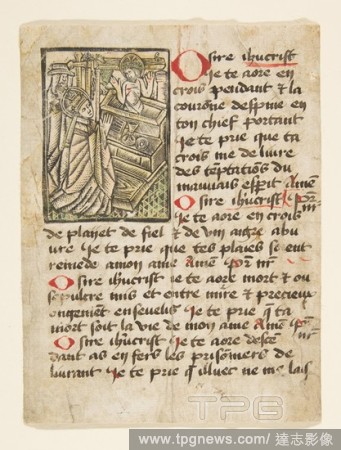 O sire ihucrist
Je te aore en
crois pendant & la
couronne despine en
ton chief portant
Je te prie que ta
crois me deliure
des teptatiõs du
mauuais esp̃it Amẽ
O sire ihucrist
Je te aore en crois
de plaiet de fiel & de vin aigre abu
ure Je te prie que tes plaies se ent
remede a mon ame Amẽ
O sire ihucrist Je te aore mort & ou
sepulcre mis et entre mire & precieux
ongement enseuelis Je te prie q̃ ta
mort soit la vie de mon ame Amẽ
O sire ihucrist Je te aore descẽ
dant as enfers les prisoniers de
liurant Je te prie q̃ illuec ne me lais
TPG
www.tpgnews.com/達志影像